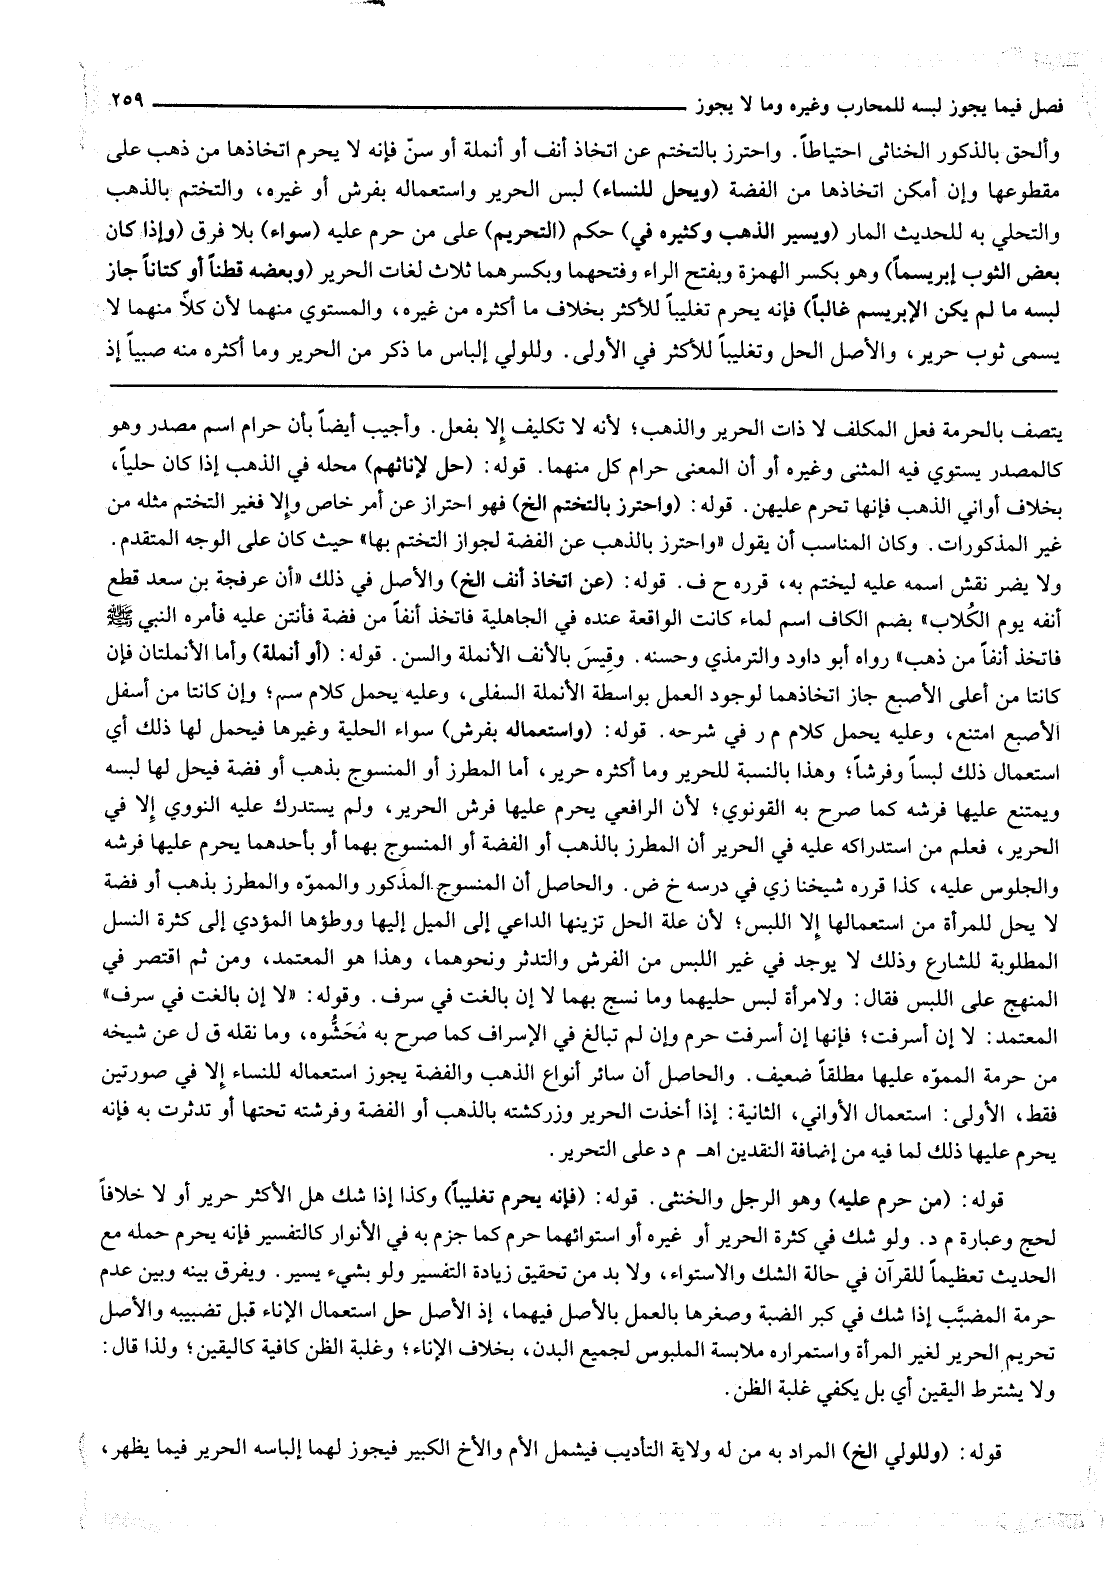 فصل فيما يجوز لبسه للمحارب وغيره وما لا يجوز ٢٥٩
وألحق بالذكور الخناثى احتياطاً. واحترز بالتختم عن اتخاذ أنف أو أنملة أو سنّ فإنه لا يحرم اتخاذها من ذهب على
مقطوعها وإن أمكن اتخاذها من الفضة (ويحل للنساء) لبس الحرير واستعماله بفرش أو غيره، والتختم بالذهب
والتحلي به للحديث المار (ويسير الذهب وكثيره في) حكم (التحريم) على من حرم عليه (سواء) بلا فرق (وإذا كان
بعض الثوب إبريسماً) وهو بكسر الهمزة وبفتح الراء وفتحهما وبكسرهما ثلاث لغات الحرير (وبعضه قطناً أو كتاناً جاز
لبسه ما لم يكن الإبريسم غالباً) فإنه يحرم تغليباً للأكثر بخلاف ما أكثره من غيره، والمستوي منهما لأن كلاًّ منهما لا
يسمى ثوب حرير، والأصل الحل وتغليباً للأكثر في الأولى. وللولي إلباس ما ذكر من الحرير وما أكثره منه صبياً إذ
يتصف بالحرمة فعل المكلف لا ذات الحرير والذهب؛ لأنه لا تكليف إلا بفعل. وأجيب أيضاً بأن حرام اسم مصدر وهو
كالمصدر يستوي فيه المثنى وغيره أو أن المعنى حرام كل منهما. قوله: (حل لإناثهم) محله في الذهب إذا كان حلياً،
بخلاف أواني الذهب فإنها تحرم عليهن. قوله: (واحترز بالتختم الخ) فهو احتراز عن أمر خاص وإلا فغير التختم مثله من
غير المذكورات. وكان المناسب أن يقول «واحترز بالذهب عن الفضة لجواز التختم بها» حيث كان على الوجه المتقدم.
ولا يضر نقش اسمه عليه ليختم به، قرره ح ف. قوله: (عن اتخاذ أنف الخ) والأصل في ذلك «أن عرفجة بن سعد قطع
أنفه يوم الكُلاب» بضم الكاف اسم لماء كانت الواقعة عنده في الجاهلية فاتخذ أنفاً من فضة فأنتن عليه فأمره النبي ﷺ
فاتخذ أنفاً من ذهب» رواه أبو داود والترمذي وحسنه. وقِيسَ بالأنف الأنملة والسن. قوله: (أو أنملة) وأما الأنملتان فإن
كانتا من أعلى الأصبع جاز اتخاذهما لوجود العمل بواسطة الأنملة السفلى، وعليه يحمل كلام سم؛ وإن كانتا من أسفل
الأصبع امتنع، وعليه يحمل كلام م ر في شرحه. قوله: (واستعماله بفرش) سواء الحلية وغيرها فيحمل لها ذلك أي
استعمال ذلك لبساً وفرشاً؛ وهذا بالنسبة للحرير وما أكثره حرير، أما المطرز أو المنسوج بذهب أو فضة فيحل لها لبسه
ويمتنع عليها فرشه كما صرح به القونوي؛ لأن الرافعي يحرم عليها فرش الحرير، ولم يستدرك عليه النووي إلا في
الحرير، فعلم من استدراكه عليه في الحرير أن المطرز بالذهب أو الفضة أو المنسوج بهما أو بأحدهما يحرم عليها فرشه
والجلوس عليه، كذا قرره شيخنا زي في درسه خ ض. والحاصل أن المنسوج المذكور والمموّه والمطرز بذهب أو فضة
لا يحل للمرأة من استعمالها إلا اللبس؛ لأن علة الحل تزينها الداعي إلى الميل إليها ووطؤها المؤدي إلى كثرة النسل
المطلوبة للشارع وذلك لا يوجد في غير اللبس من الفرش والتدثر ونحوهما، وهذا هو المعتمد، ومن ثم اقتصر في
المنهج على اللبس فقال: ولامرأة لبس حليهما وما نسج بهما لا إن بالغت في سرف. وقوله: «لا إن بالغت في سرف»
المعتمد: لا إن أسرفت؛ فإنها إن أسرفت حرم وإن لم تبالغ في الإسراف كما صرح به مُحَشُّوه، وما نقله ق ل عن شيخه
من حرمة المموّه عليها مطلقاً ضعيف. والحاصل أن سائر أنواع الذهب والفضة يجوز استعماله للنساء إلا في صورتين
فقط، الأولى: استعمال الأواني، الثانية: إذا أخذت الحرير وزركشته بالذهب أو الفضة وفرشته تحتها أو تدثرت به فإنه
يحرم عليها ذلك لما فيه من إضافة النقدين اهـ م د على التحرير.
قوله: (من حرم عليه) وهو الرجل والخنثى. قوله: (فإنه يحرم تغليباً) وكذا إذا شك هل الأكثر حرير أو لا خلافاً
لحج وعبارة م د. ولو شك في كثرة الحرير أو غيره أو استوائهما حرم كما جزم به في الأنوار كالتفسير فإنه يحرم حمله مع
الحديث تعظيماً للقرآن في حالة الشك والاستواء، ولا بد من تحقيق زيادة التفسير ولو بشيء يسير. ويفرق بينه وبين عدم
حرمة المضبَّب إذا شك في كبر الضبة وصغرها بالعمل بالأصل فيهما، إذ الأصل حل استعمال الإناء قبل تضبيبه والأصل
تحريم الحرير لغير المرأة واستمراره ملابسة الملبوس لجميع البدن، بخلاف الإناء؛ وغلبة الظن كافية كاليقين؛ ولذا قال:
ولا يشترط اليقين أي بل يكفي غلبة الظن.
قوله: (وللولي الخ) المراد به من له ولاية التأديب فيشمل الأم والأخ الكبير فيجوز لهما إلباسه الحرير فيما يظهر،